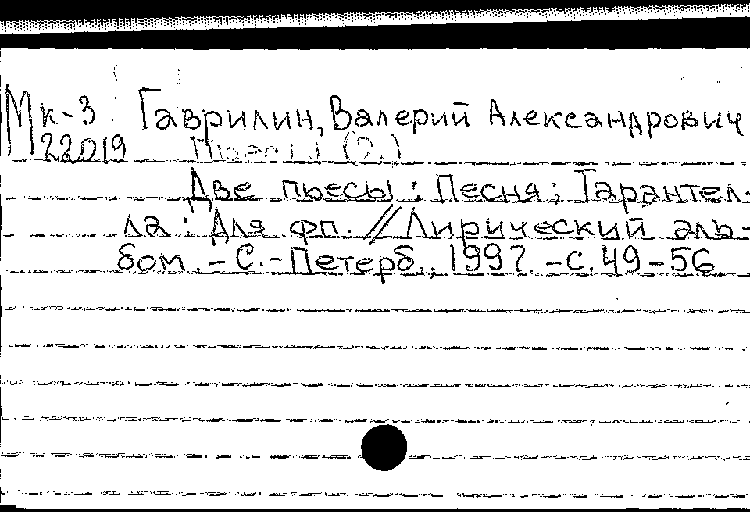 Мк-3 Гаврилин, Валерий Александрович
22019 Пьесы (2.)
Две пьесы: Песня; Тарантел-
ла: Для фп. // Лирический аль-
бом. - С.-Петерб., 1997. - с. 49-56